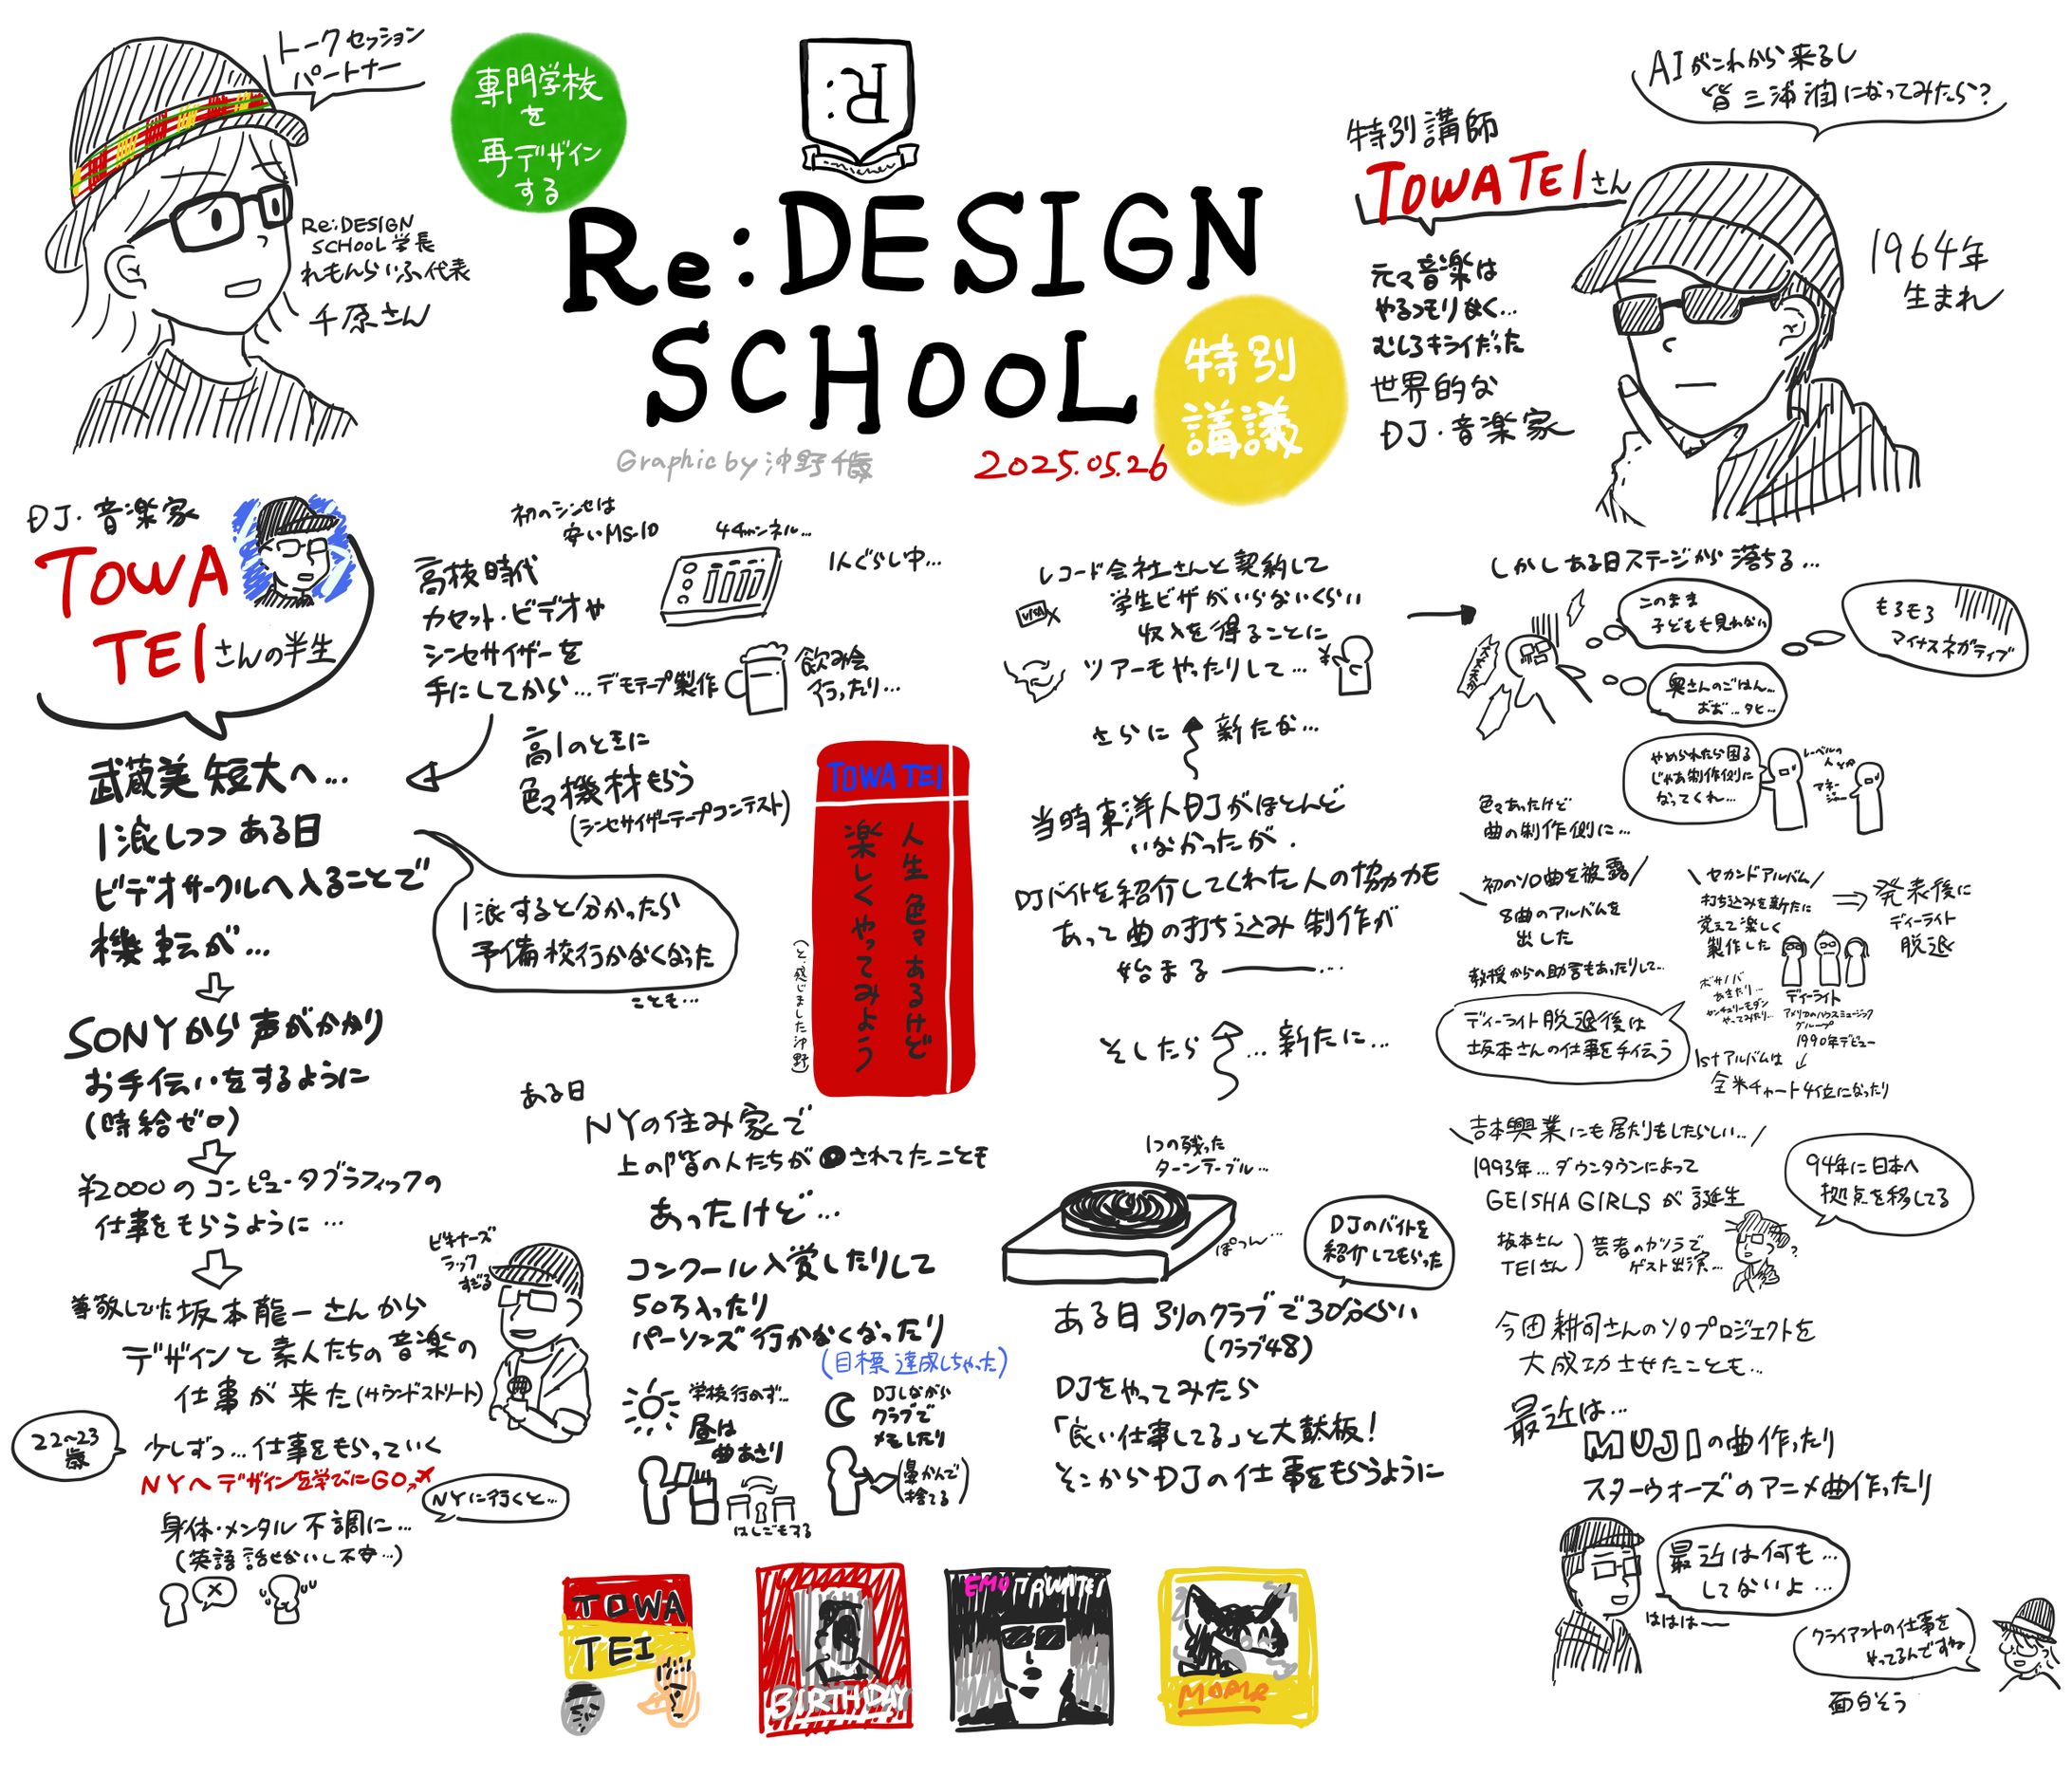 トークセッション
パートナー
Re:DESIGN
SCHOOL学長
れもんらいふ代表
千原さん
専門学校
を
再デザイン
する
R:
Re:DESIGN
SCHOOL
特別
講議
Graphic by 沖野
2025.05.26
AIがこれから来るし
皆三浦潤になってみたら?
特別講師
TOWA TEIさん
元々音楽は
やるつもりなく…
むしろキライだった
世界的な
DJ・音楽家
1964年
生まれ
DJ・音楽家
TOWA
TEIさんの半生
初のシンセは
安いMS-10
高校時代
カセット・ビデオや
シンセサイザーを
手にしてから…デモテープ製作
4チャンネル…
1人ぐらし中…
飲み会
行ったり…
高1のときに
色々機材もらう
(シンセサイザーテープコンテスト)
武蔵美短大へ…
1浪しつつある日
ビデオサークルへ入ることで
機転が…
1浪すると分かったら
予備校行かなくなった
ことも…
SONYから声がかかり
お手伝いをするように
(時給ゼロ)
¥2000のコンピュータグラフィックの
仕事をもらうように…
尊敬してた坂本龍一さんから
デザインと素人たちの音楽の
仕事が来た(サウンドストリート)
ビギナーズ
ラック
すぎる
22~23
歳
少しずつ…仕事をもらっていく
NYへデザインを学びにGO
NYに行くと…
身体・メンタル不調に…
(英語話せないし不安…)
TOWA TEI
人生色々あるけど
楽しくやってみよう
(と、感じました沖野)
ある日
NYの住み家で
上の階の人たちが●されてたことも
あったけど…
コンクール入賞したりして
50万入ったり
パーソンズ行かなくなったり
(目標達成しちゃった)
学校行かず…
昼は
曲あさり
はしごもする
DJしながら
クラブで
メモしたり
(鼻かんで
捨てる)
レコード会社さんと契約して
学生ビザがいらないくらい
収入を得ることに
ツアーもやったりして…
VISA
¥
さらに 新たな…
当時東洋人DJがほとんど
いなかったが.
DJバイトを紹介してくれた人の協力も
あって曲の打ち込み制作が
始まる…
そしたら …新たに…
1つの残った
ターンテーブル…
ぽつん…
DJのバイトを
紹介してもらった
ある日別のクラブで30分くらい
(クラブ48)
DJをやってみたら
「良い仕事してる」と大鼓板!
そこからDJの仕事をもらうように
しかしある日ステージから落ちる…
このまま
子どもも見れない
もろもろ
マイナスネガティブ
奥さんのごはん…
やめられたら困る
じゃあ制作側に
なってくれ…
レーベルの
人とか
マネー
ジャー
色々あったけど
曲の制作側に…
初のソロ曲を披露
8曲のアルバムを
出した
教授からの助言もあったりして…
セカンドアルバム
打ち込みを新たに
覚えて楽しく
製作した
発表後に
ディーライト
脱退
ディーライト
アメリカのハウスミュージック
グループ
1990年デビュー
1stアルバムは
全米チャート4位になったり
ディーライト脱退後は
坂本さんの仕事を手伝う
吉本興業にも居たりもしたらしい…
1993年…ダウンタウンによって
GEISHA GIRLSが誕生
94年に日本へ
拠点を移してる
坂本さん
TEIさん
芸者のカツラで
ゲスト出演…
?
今田耕司さんのソロプロジェクトを
大成功させたことも…
最近は…
MUJIの曲作ったり
スターウォーズのアニメ曲作ったり
最近は何も…
してないよ…
ははは
クライアントの仕事を
やってるんですね
面白そう
TOWA
TEI
BIRTHDAY
EMO